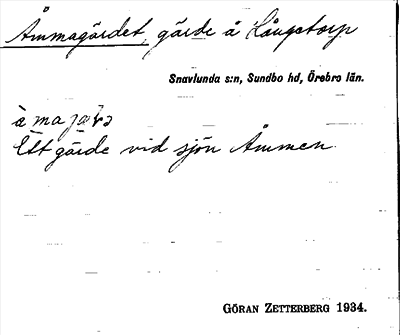 Åmmagärdet, gärde å Långetorp
Snavlunda s:n, Sundbo hd, Örebro län.
Ett gärde vid sjön Åmmen.
GÖRAN ZETTERBERG 1934.